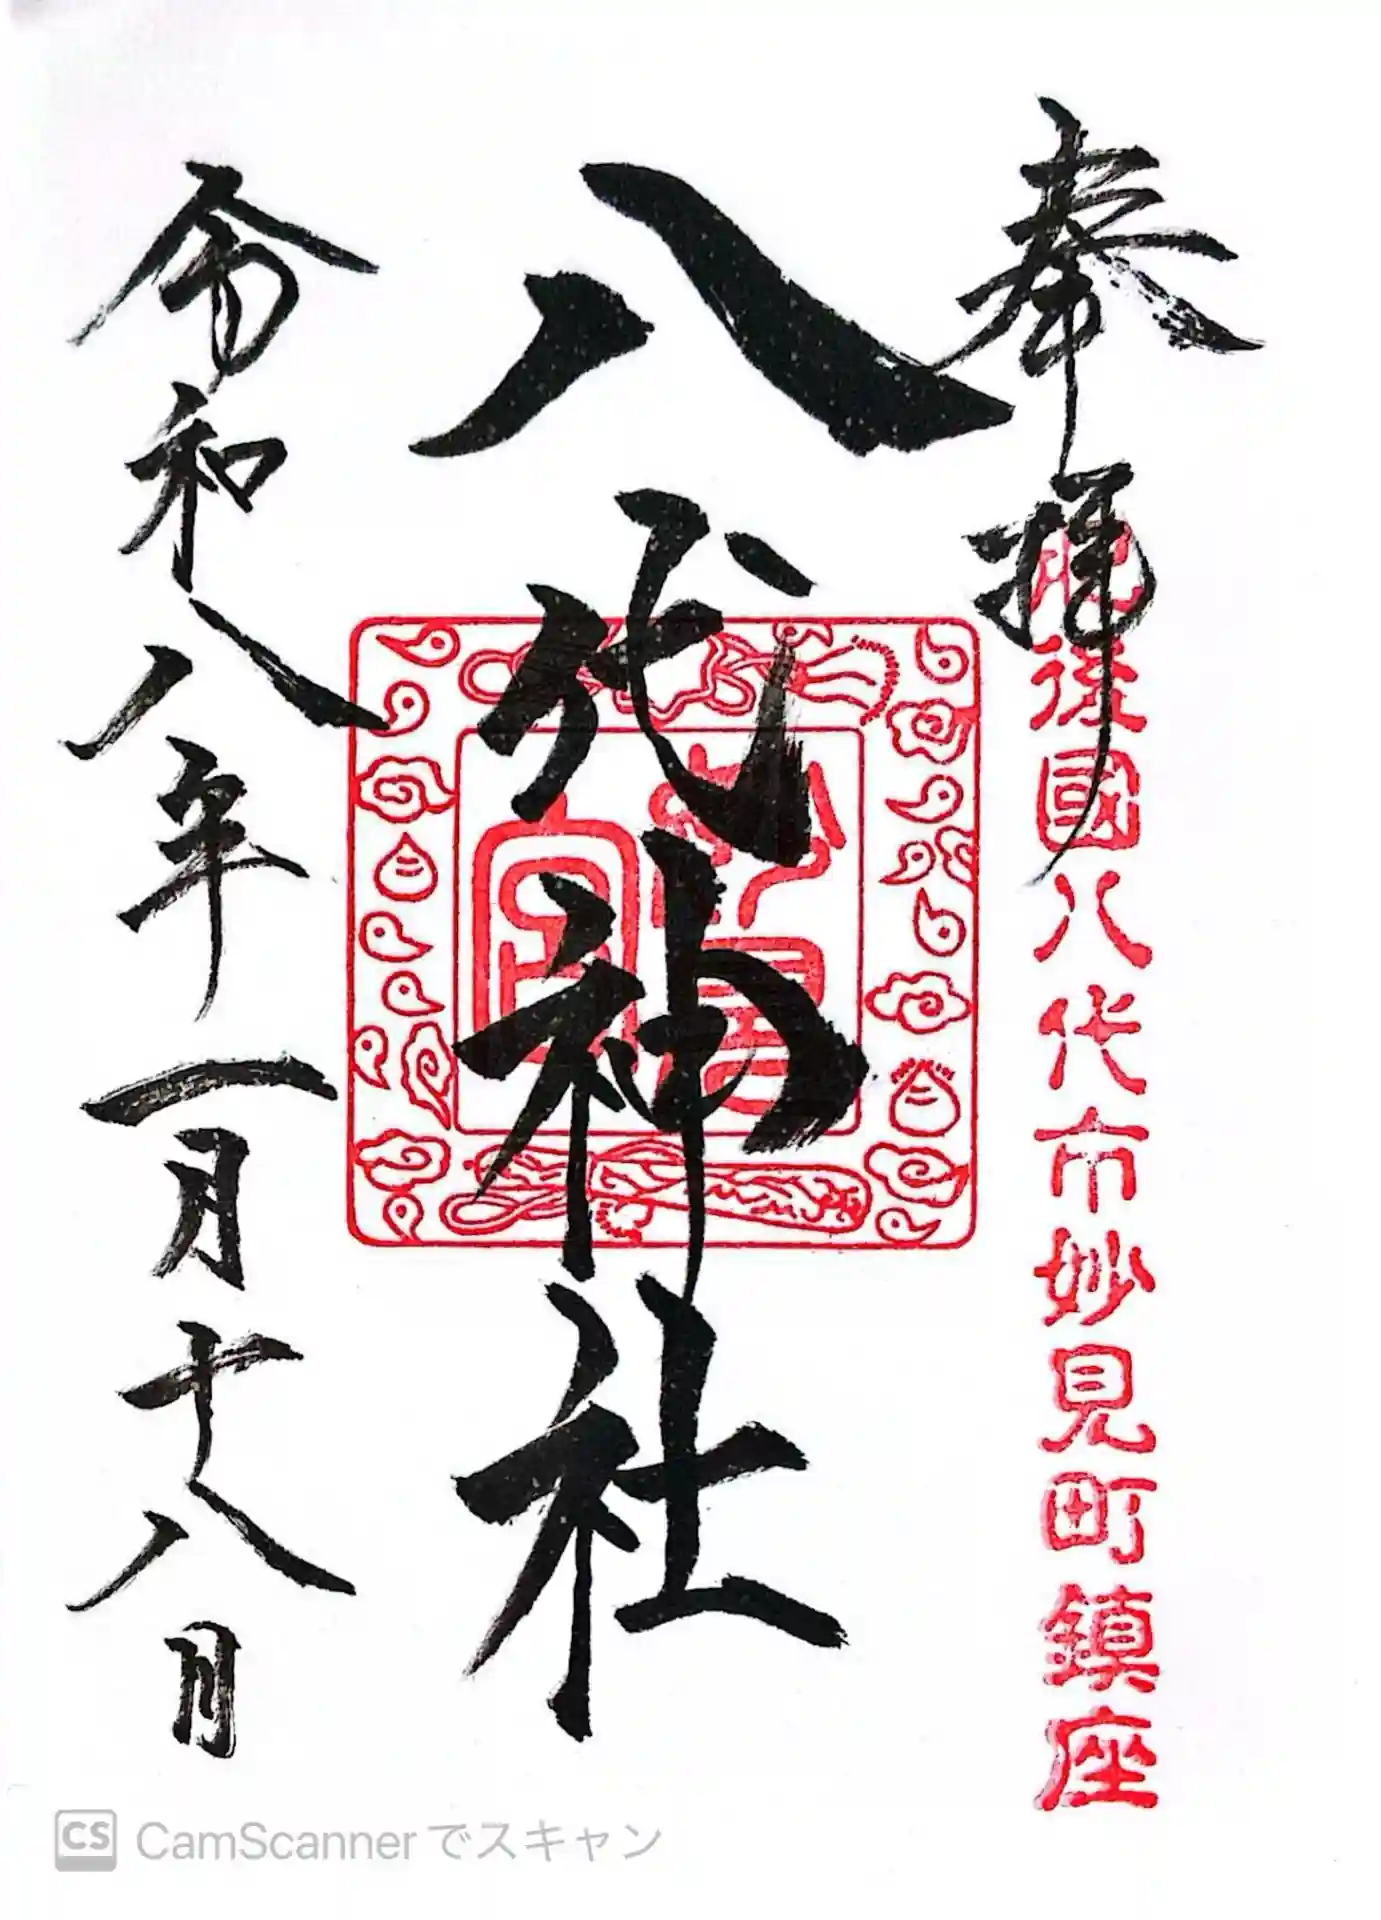 奉拝
肥後國八代市妙見町鎮座
八代神社
妙見宮
令和八年一月十八日
CS CamScannerでスキャン